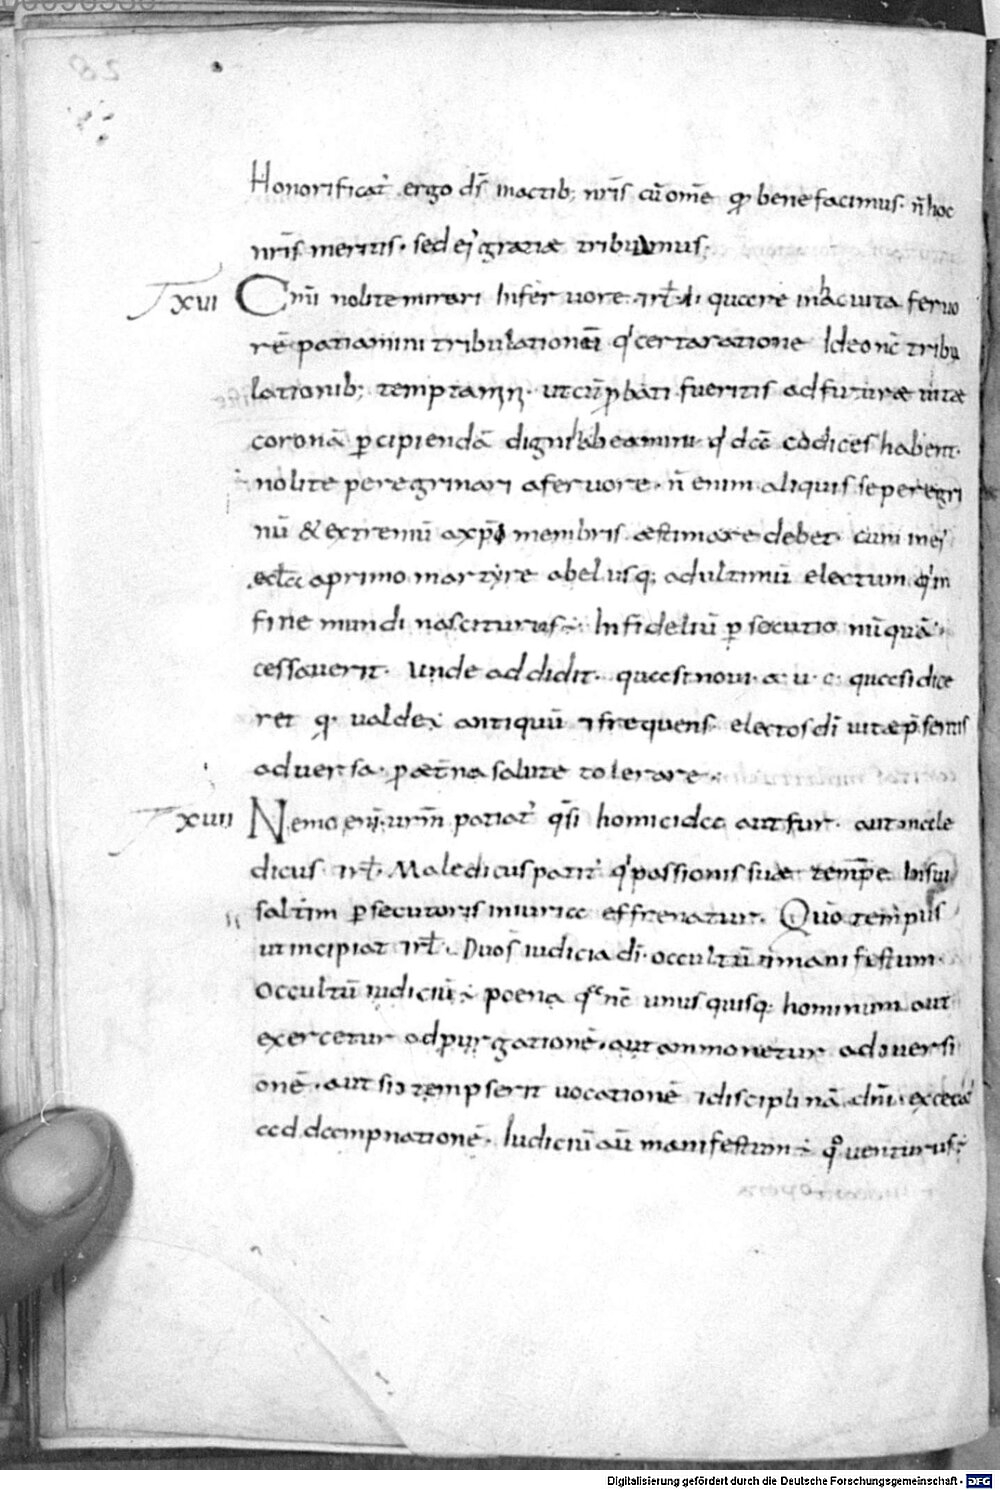 Honorificat̄ ergo ds̄ in actib; nrīs cū om̄e qḋ bene facimus. n̄ hoc
nrīs meritis. sed ei' gratiæ tribuimus.
XVI Cm̄i nolite mirari In feruore. in hac uita feruo
rē patiamini tribulationē certa ratione Ideo nc̄ tribu
lationib; temptam̄. ut cū p̱bati fueritis ad futuræ uitæ
coronā p̱cipiendā digni habeamini codices habent.
nolite peregrinari a feruore. n̄ enim aliquis se peregri
nū & extremū a xp̄o membris æstimare debet. cum mei
eccła a primo martyre abel usq; ad ultimū electum qui in
fine mundi nasciturus ÷. Infideliū p̱secutio nūquā
cessauerit. Unde addidit. quasi noui. a. u. c. quasi dice
ret q. ualde antiquū ⁊ frequens. electos dī uitæ p̄sentis
aduersa. p̱ æt̄na salute tolerare.
XVII Nemo eni. urm̄ patiat̄ qs̄i homicida aut fur. aut male
dicus. Maledicus patit̄ passionis suæ temp̄e
saltim p̱secutoris iniuria effrenatur. Quō tempus
ut incipiat Duos iudicia dī. occultū ⁊ manifestum.
Occultū iudiciū ÷ poena nc̄ unusquisq; hominum aut
exercetur ad purgationē. aut ammonetur ad conuersi
onē. aut si contempserit uocationē ⁊ disciplinā dn̄i. excecat̄
ad dampnationē. Iudiciū aū manifestum ÷ qō uenturus ÷
Digitalisierung gefördert durch die Deutsche Forschungsgemeinschaft - DFG